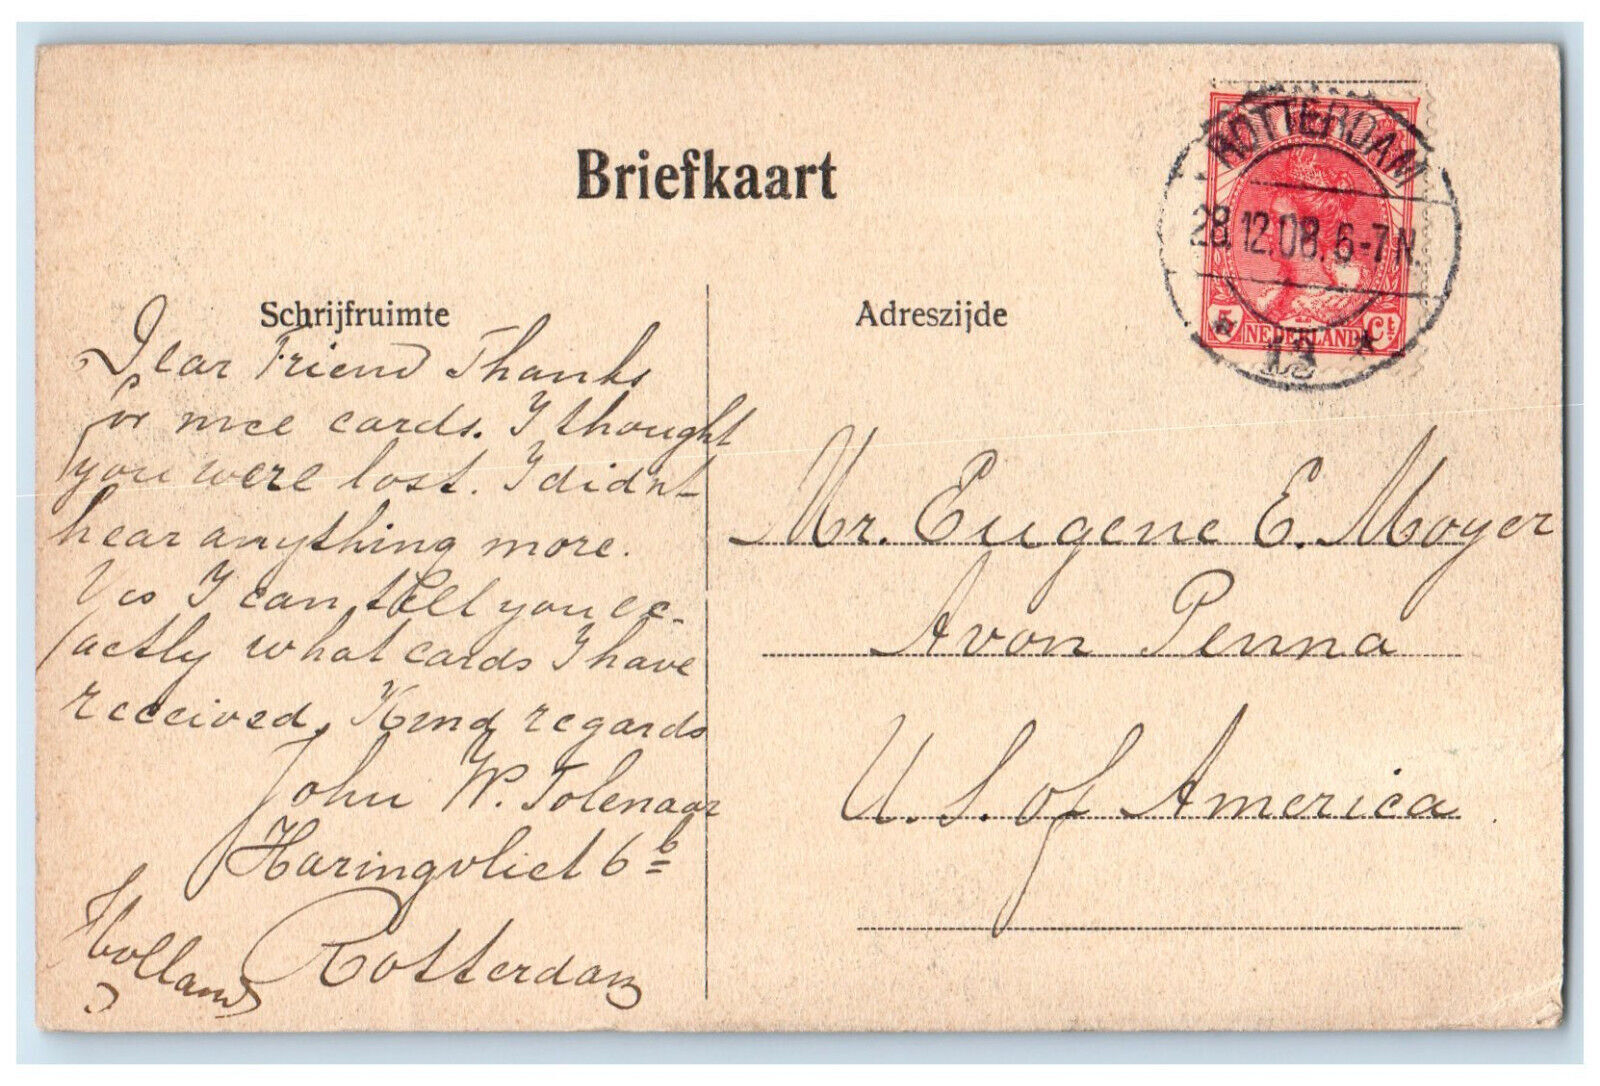 Briefkaart
Schrijfruimte
Adreszijde
ROTTERDAM
28.12.08.6-7N.
* 12 *
5 NEDERLAND Ct
Dear Friend Thanks
for nice cards. I thought
you were lost. I didnt
hear anything more.
Yes I can tell you ex-
actly what cards I have
received. Kind regards
John W. Tolenaar
Haringvliet 6b
Rotterdam
Holland
Mr. Eugene E. Moyer
Avon Penna
U.S. of America